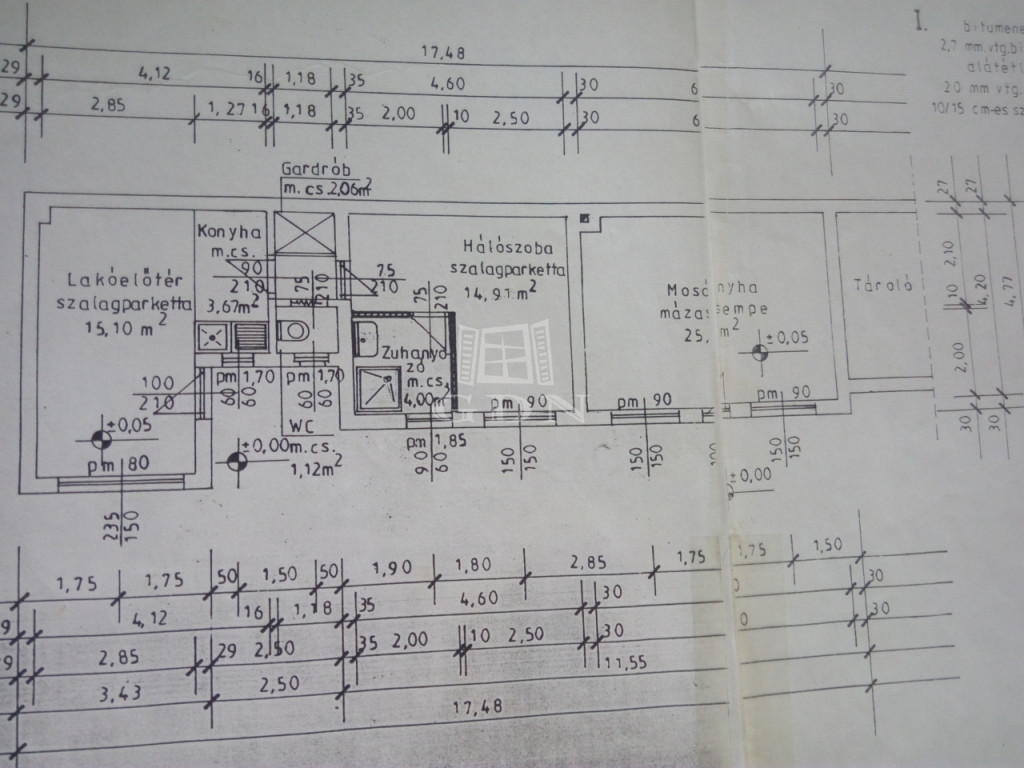 17,48
I.
bitumene
29 4,12 16 1,18 35 4,60 30 6 30
2,7 mm.vtg.bi
alátétl
20 mm vtg.
29 2,85 1,27 16 1,18 35 2,00 10 2,50 30 6 30
10/15 cm-es sz
Gardrób
m.cs. 2,06m²
Konyha
m.cs.
3,67m²
90
210
75
210
75
210
Hálószoba
szalagparketta
14,91 m²
75
210
Lakóelőtér
szalagparketta
15,10 m²
25, m²
±0,05
Tároló
27 27
2,10
10
4,20
4,77
2,00
30 30
Zuhanyo
zó
m.cs.
4,00m²
100
210
pm 1,70
60
60
pm 1,70
60
60
WC
m.cs.
1,12m²
±0,05
±0,00
pm 80
235
150
pm 1,85
90
60
pm 90
150
150
pm 90
150
150
pm 90
150
150
±0,00
GDN
1,75 1,75 50 1,50 50 1,90 1,80 2,85 1,75 1,75 1,50
4,12 16 1,18 35 4,60 30 30
29 2,85 29 2,50 35 2,00 10 2,50 30 30
3,43 2,50 11,55
17,48